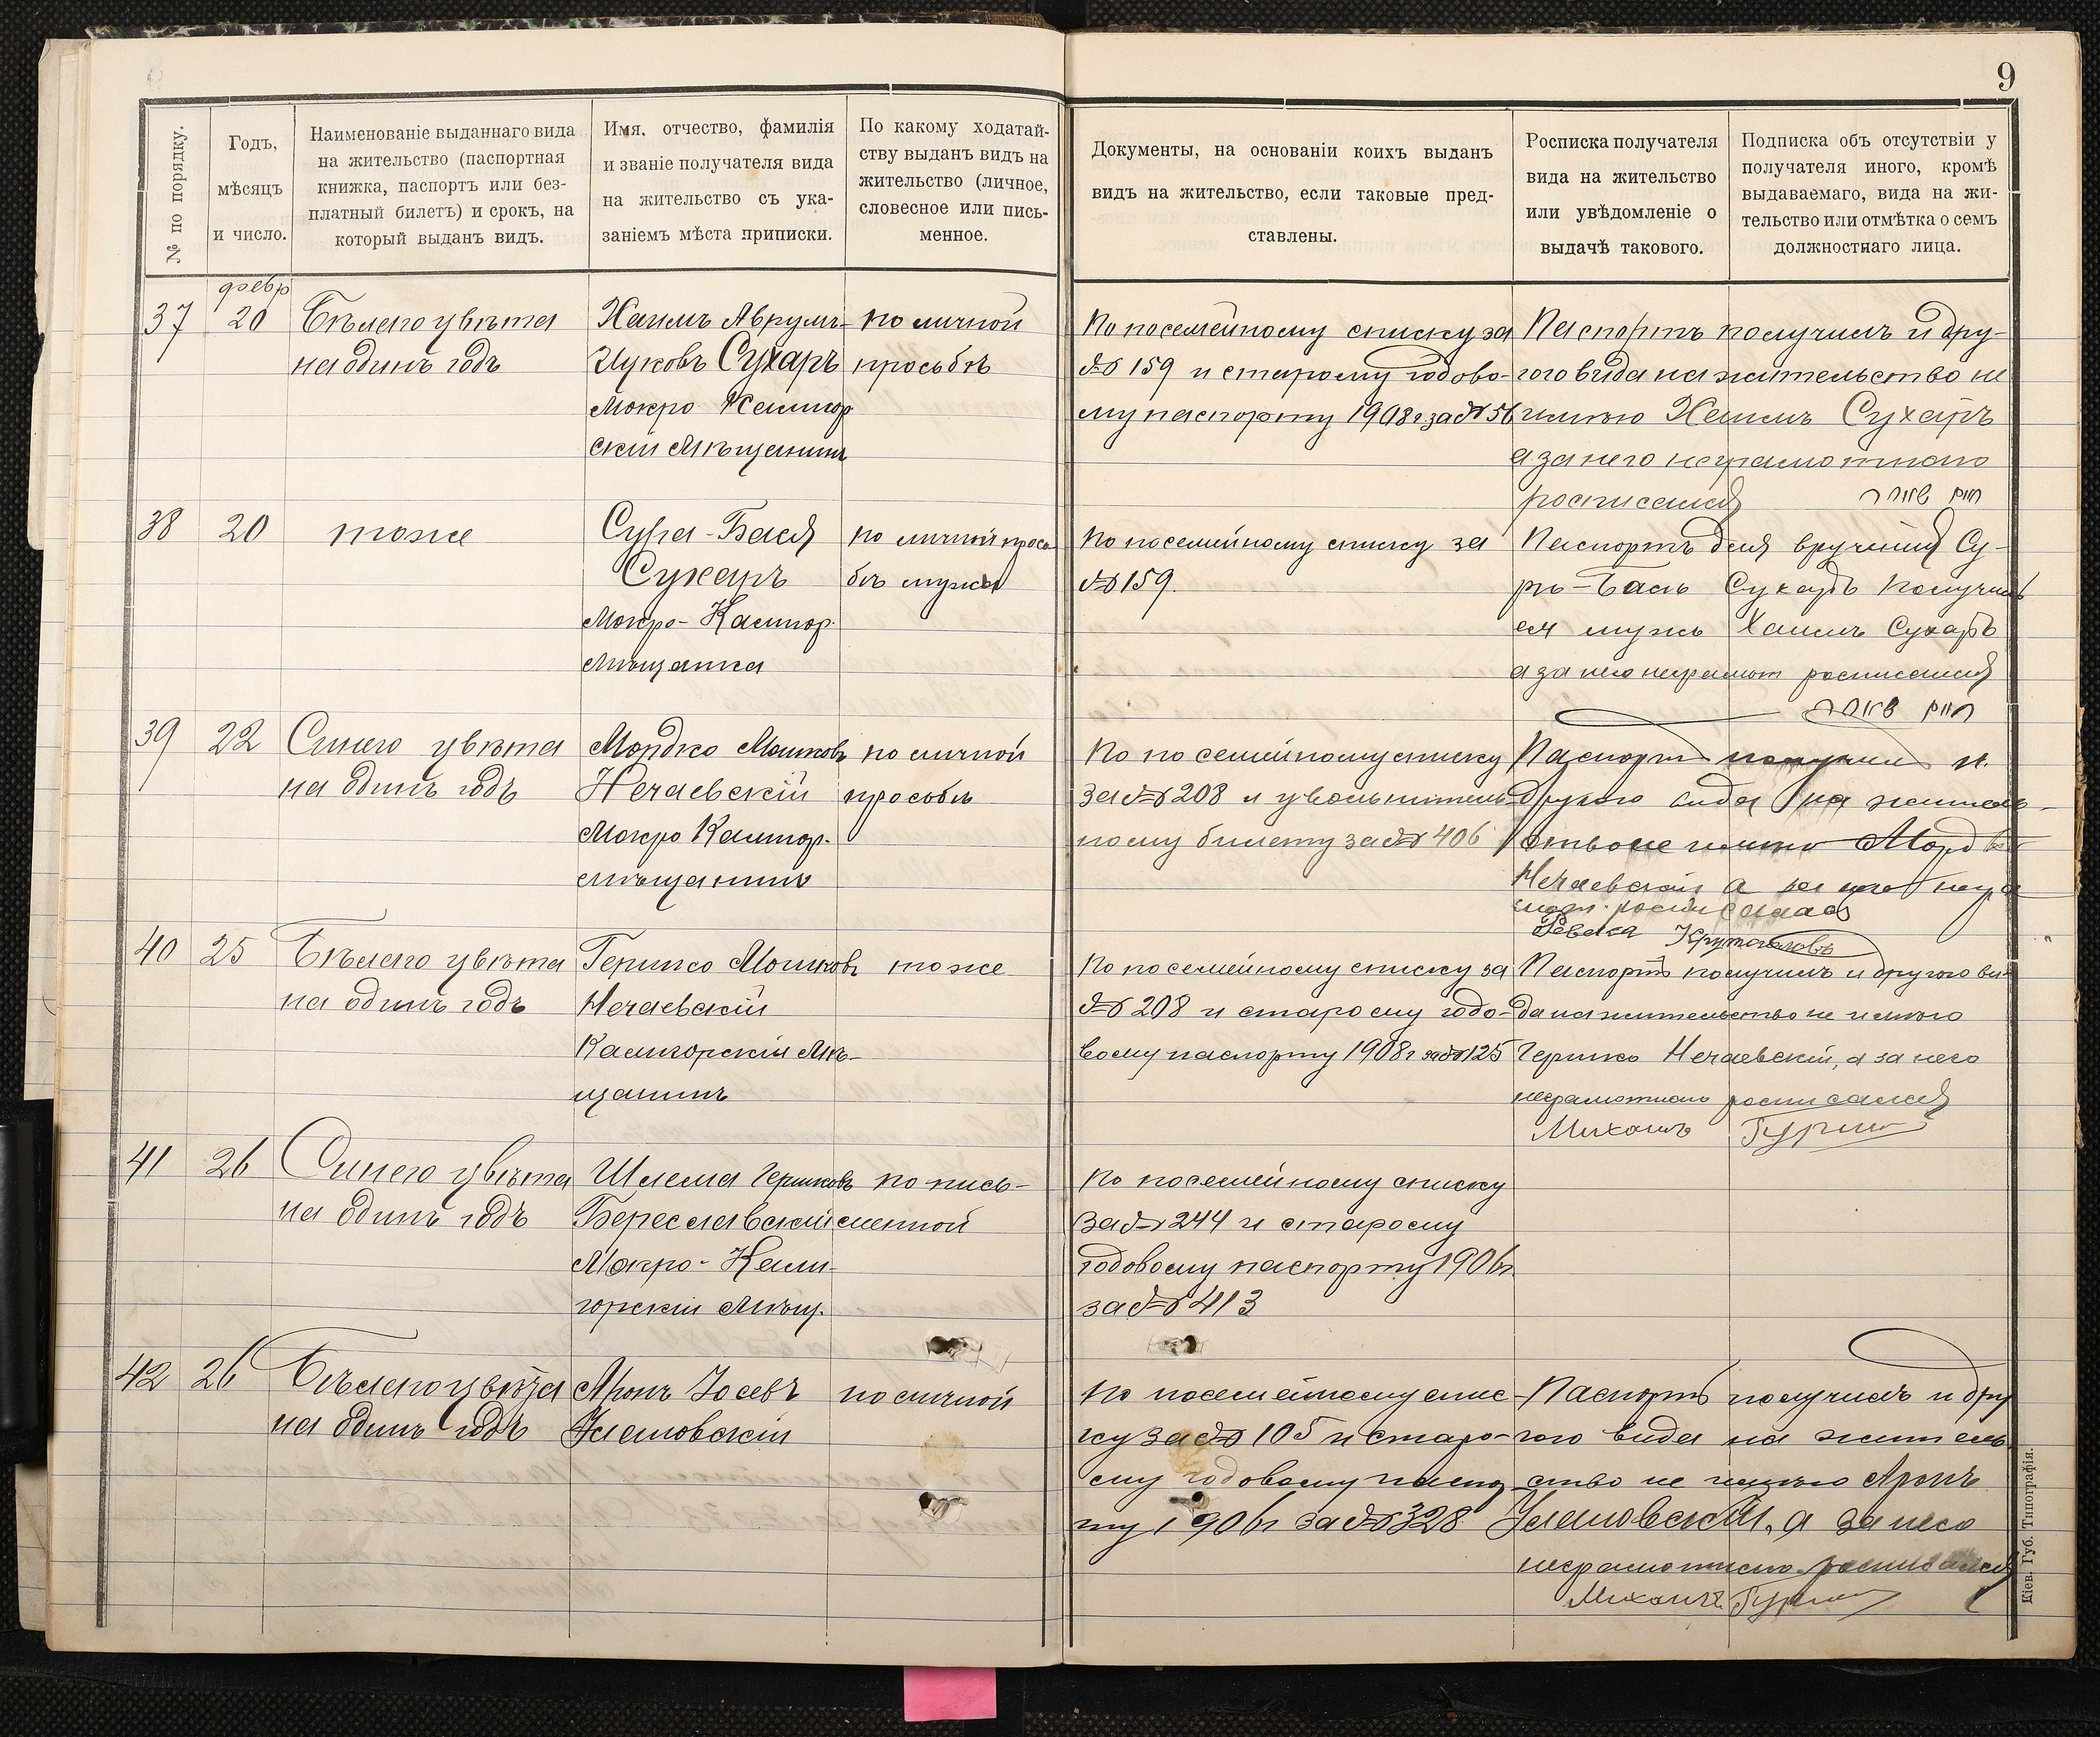 9
№ по порядку.
Годъ,
мѣсяцъ
и число.
Наименованіе выданнаго вида
на жительство (паспортная
книжка, паспортъ или без-
платный билетъ) и срокъ, на
который выданъ видъ.
Имя, отчество, фамилія
и званіе получателя вида
на жительство съ ука-
заніемъ мѣста приписки.
По какому ходатай-
ству выданъ видъ на
жительство (личное,
словесное или пись-
менное.
Документы, на основаніи коихъ выданъ
видъ на жительство, если таковые пред-
ставлены.
Росписка получателя
вида на жительство
или увѣдомленіе о
выдачѣ такового.
Подписка объ отсутствіи у
получателя иного, кромѣ
выдаваемаго, вида на жи-
тельство или отмѣтка о семъ
должностнаго лица.
февр
37
20
Бѣлаго цвѣта
на одинъ годъ
Хаимъ Аврумъ-
Ицковъ Сухаръ
Мокро Калигор
скій Мѣщанинъ
по личной
просьбѣ
По посемейному списку за
№ 159 и старому годово-
му паспорту 1908 г. за № 56
Паспортъ получилъ и дру-
гого вида на жительство не
имѣю Хаимъ Сухаръ
а за него неграмотного
росписался
38
20
тоже
Сура-Бася
Сухаръ
Мокро-Калигор.
Мѣщанка
по личной прось
бѣ мужа
По посемейному списку за
№ 159.
Паспортъ для врученія Су-
рѣ-Басѣ Сухаръ получилъ
ея мужъ Хаимъ Сухаръ
а за него неграмот росписался
39
22
Синего цвѣта
на одинъ годъ
Мордко Мошковъ
Нечаевскій
Мокро Калигор.
мѣщанинъ
по личной
просьбѣ
По посемейному списку
за № 208 и увольнитель-
ному билету за № 406
Паспортъ получилъ и
другого вида на житель-
ство не имѣю Мордко
Нечаевскій а за него негра
мот. росписалась
Ревека
40
25
Бѣлаго цвѣта
на одинъ годъ
Гершко Мошковъ
Нечаевскій
Калигорскій Мѣ-
щанинъ
тоже
По посемейному списку за
№ 208 и старому годо-
вому паспорту 1908 г за № 125
Паспортъ получилъ и другого ви-
да на жительство не имѣю
Гершко Нечаевскій, а за него
неграмотнаго росписался
Михаилъ
41
26
Синего цвѣта
на одинъ годъ
Шлема Гершковъ
Береславскій
Мокро-Кали-
горскій Мѣщ.
по пись-
менной
По посемейному списку
за № 244 и старому
годовому паспорту 1906 г
за № 413
42
26
Бѣлаго цвѣта
на одинъ годъ
Аронъ Іосевъ
Улановскій
по личной
По посемейному спис-
ку за № 105 и старо-
му годовому паспор
ту 1906 г за № 328
Паспортъ получилъ и дру
гого вида на житель
ство не имѣю Аронъ
Улановскій, а за него
неграмотнаго росписался
Михаилъ
Кіев. Губ. Типографія.